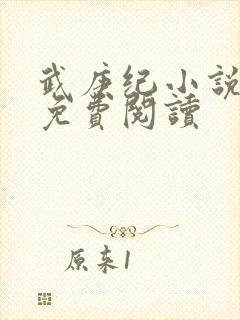 武庚纪小説
免費閱讀
原来1